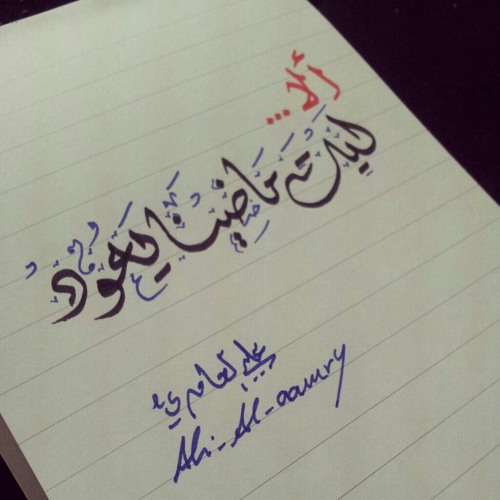 ألا...
ليت ماضينا يعود
علي العامري
Ali-Al-aamry